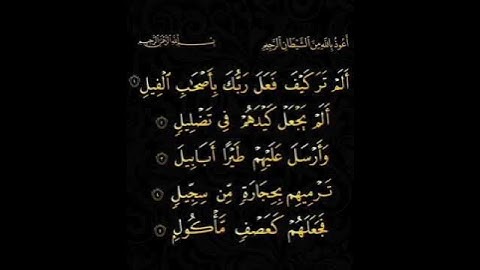 أَعُوذُ بِاللَّهِ مِنَ الشَّيْطَانِ الرَّجِيمِ بِسْمِ اللَّهِ الرَّحْمَٰنِ الرَّحِيمِ
أَلَمْ تَرَ كَيْفَ فَعَلَ رَبُّكَ بِأَصْحَابِ الْفِيلِ ١
أَلَمْ يَجْعَلْ كَيْدَهُمْ فِي تَضْلِيلٍ ٢
وَأَرْسَلَ عَلَيْهِمْ طَيْرًا أَبَابِيلَ ٣
تَرْمِيهِم بِحِجَارَةٍ مِّن سِجِّيلٍ ٤
فَجَعَلَهُمْ كَعَصْفٍ مَّأْكُولٍ ٥